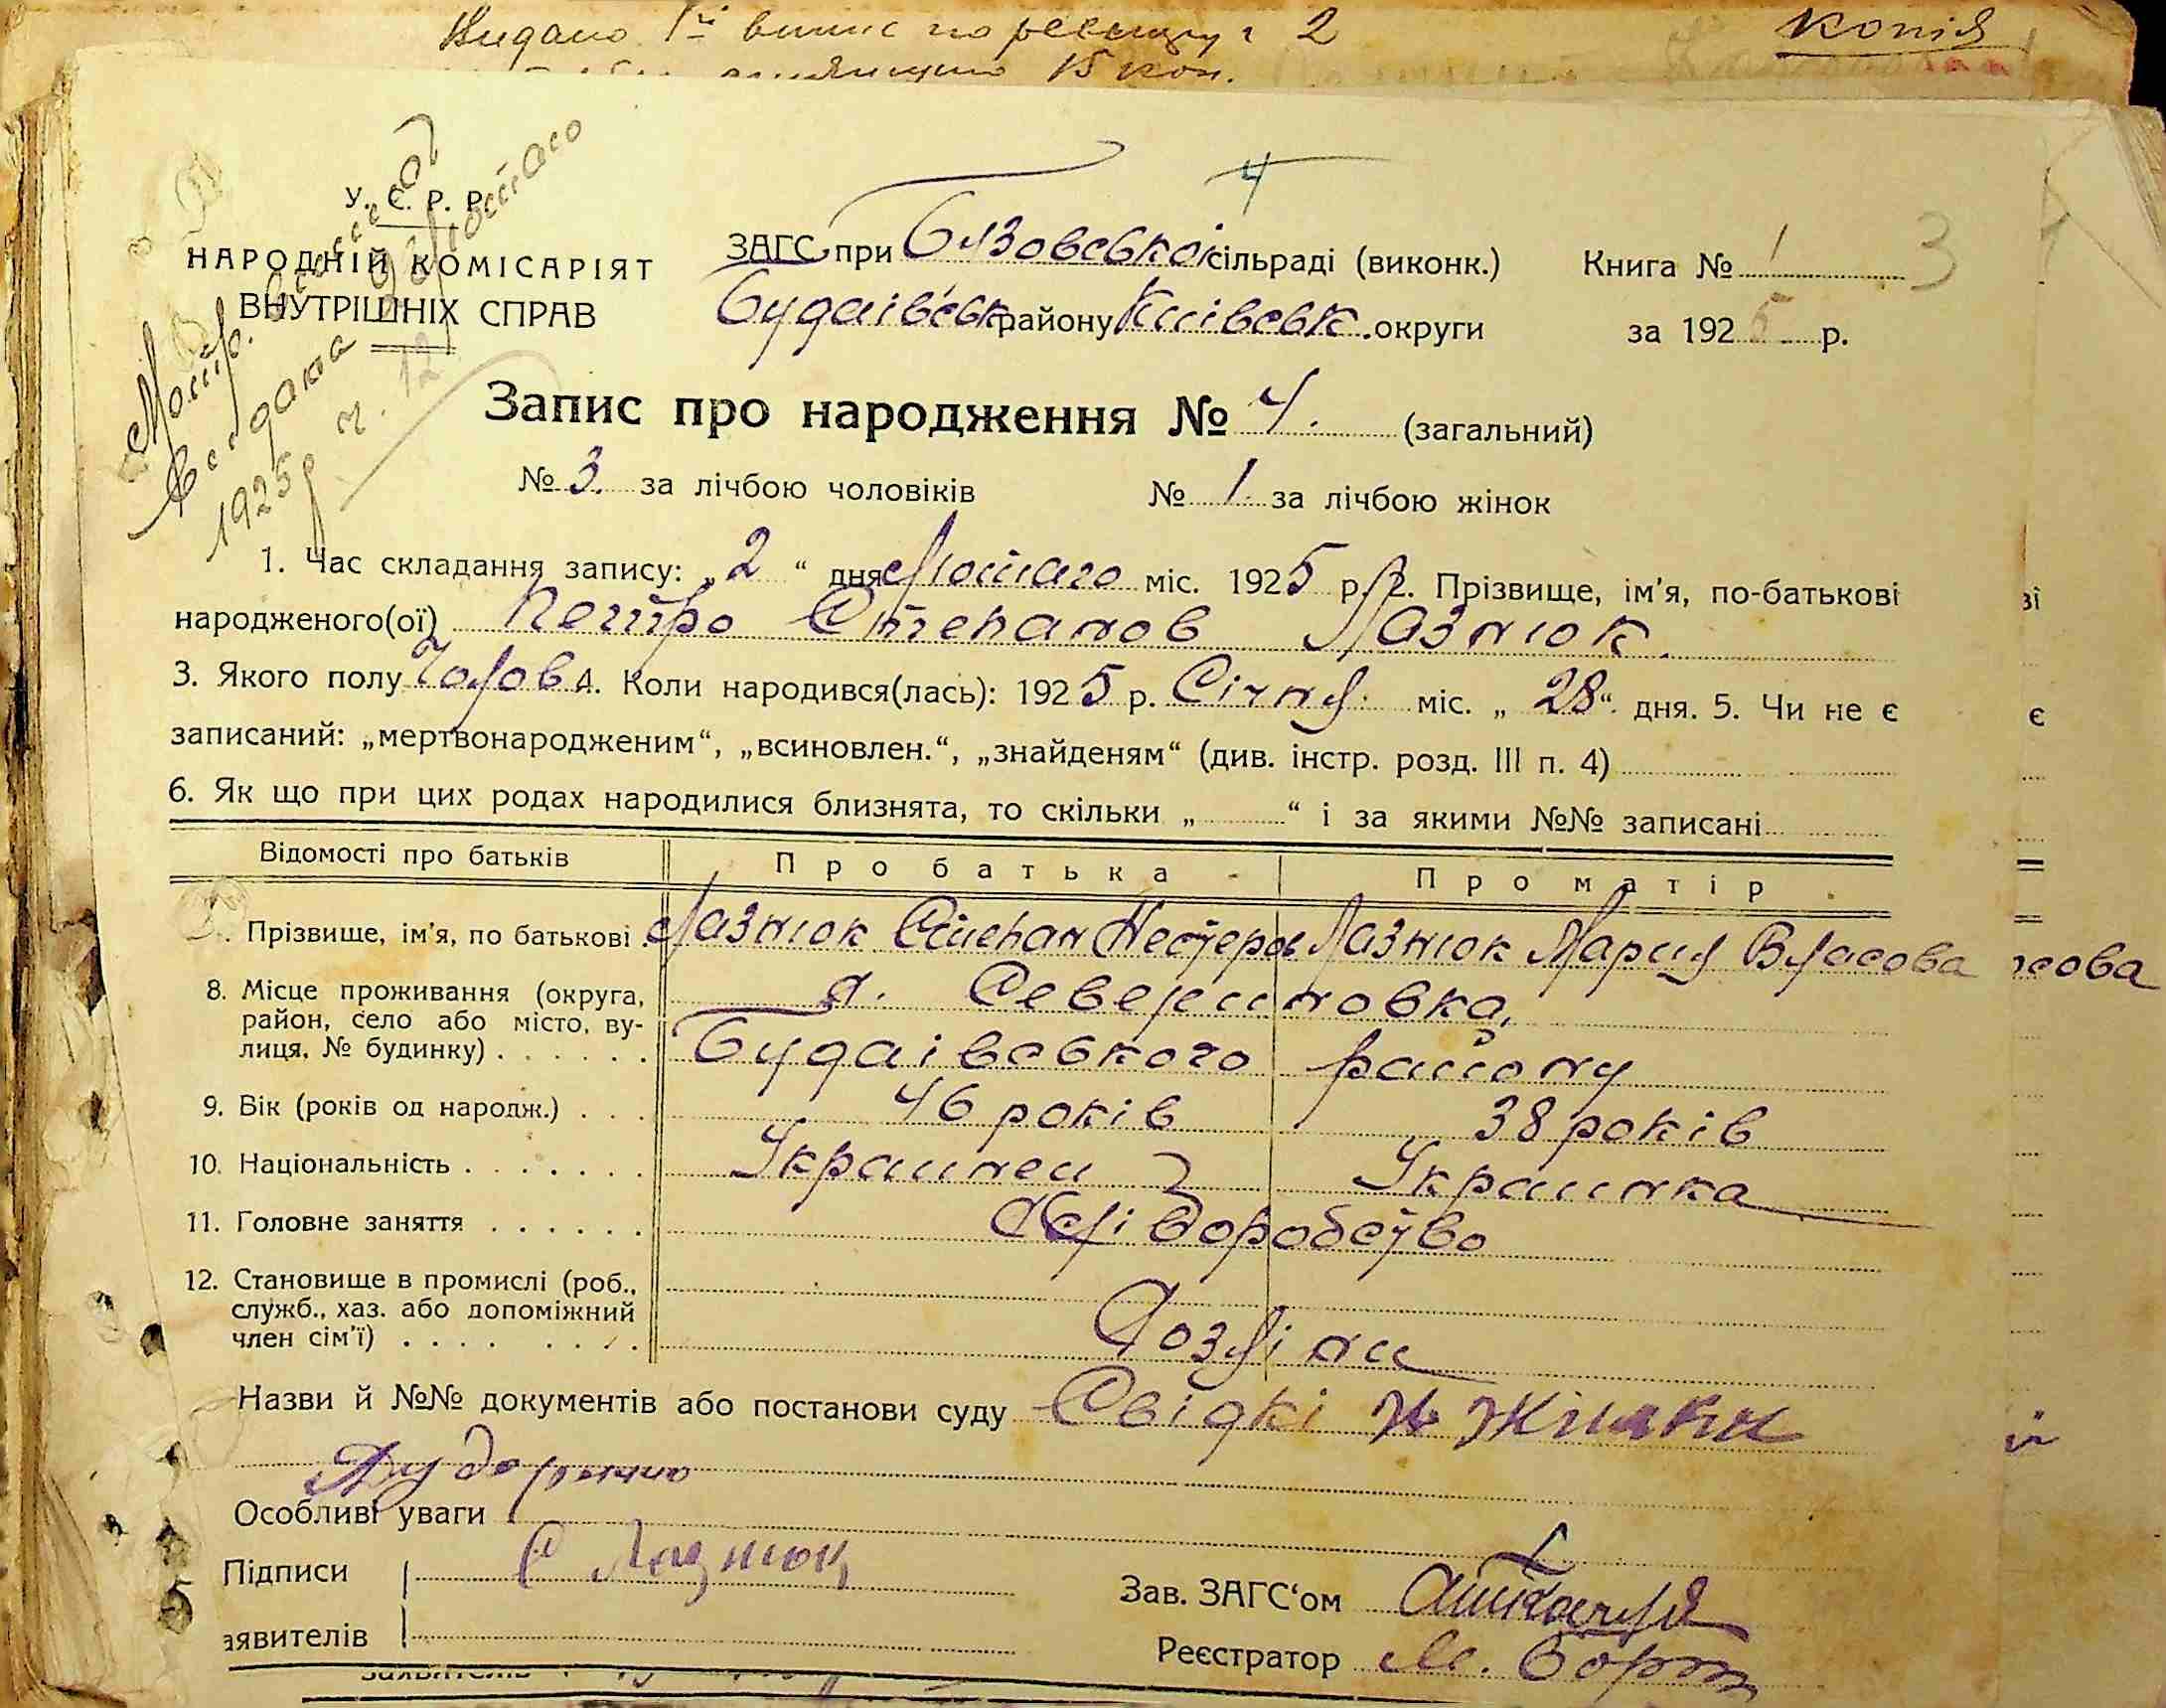 Видано 1й випис по реєстру № 2
15 коп.
копія
У. С. Р. Р.
НАРОДНІЙ КОМІСАРІЯТ
ВНУТРІШНІХ СПРАВ
Метр. виписка
Видана 20/Лютого
1925 р. ч. 12
4
ЗАГС при Бузовській сільраді (виконк.)
Будаівськ району Київськ. округи
Книга № 1 3
за 1925 р.
Запис про народження № 4. (загальний)
№ 3. за лічбою чоловіків № 1. за лічбою жінок
1. Час складання запису: „ 2 “ дня Лютого міс. 1925 р. 2. Прізвище, ім'я, по-батькові
народженого(ої) Петро Степанов Лазнюк.
3. Якого полу Чолов 4. Коли народився(лась): 1925 р. Січня міс. „ 28 “ дня. 5. Чи не є
записаний: „мертвонародженим“, „всиновлен.“, „знайденям“ (див. інстр. розд. III п. 4)
6. Як що при цих родах народилися близнята, то скільки „ “ і за якими №№ записані
Відомості про батьків Про батька Про матір
Прізвище, ім'я, по батькові Лазнюк Степан Нестеров Лазнюк Мария Власова
сова
8. Місце проживання (округа,
район, село або місто, ву-
лиця, № будинку)
с. Севериновка,
Будаівського району
9. Вік (років од народж.) 46 років 38 років
10. Національність Украинец Украинка
11. Головне заняття Хліборобство
12. Становище в промислі (роб.,
служб., хаз. або допоміжний
член сім'ї)
Хозяіни
Назви й №№ документів або постанови суду Свідкі
Особливі уваги
Підписи С Лазнюк
заявителів
Зав. ЗАГС'ом
Реєстратор
заявителів